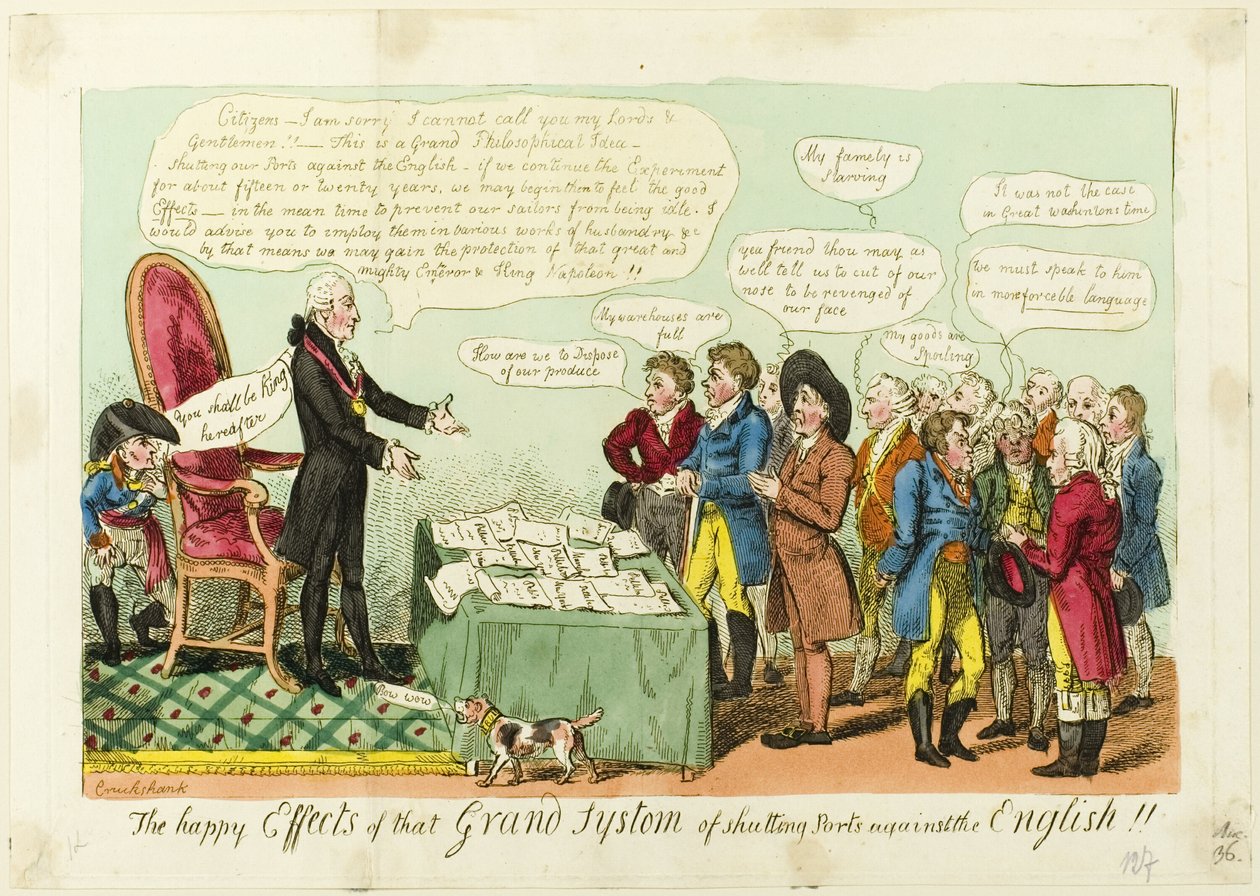 Citizens — I am sorry I cannot call you my Lords &
Gentlemen !! — This is a Grand Philosophical Idea —
shutting our Ports against the English — if we continue the Experiment
for about fifteen or twenty years, we may begin then to feel the good
Effects — in the mean time to prevent our sailors from being idle. I
would advise you to imploy them in various works of husbandry &c
by that means we may gain the protection of that great and
mighty Emperor & King Napoleon !!
You shall be King
hereafter
How are we to Dispose
of our produce
My warehouses are
full
My famely is
Starving
yea friend thou may as
well tell us to cut of our
nose to be revenged of
our face
My goods are
Spoiling
It was not the case
in Great Washintons time
We must speak to him
in more forceble language
Bow wow
Cruikshank
The happy Effects of that Grand Systom of shutting Ports against the English !!
127
36.